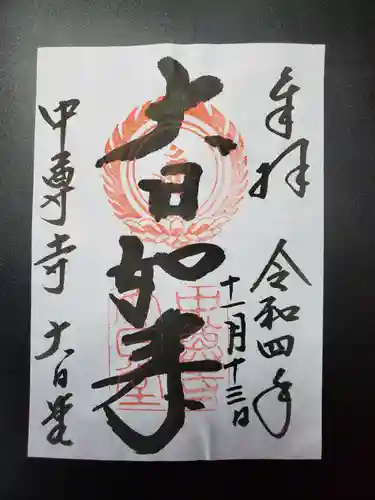 奉拝
令和四年
十一月十三日
大日如来
中尊寺 大日堂